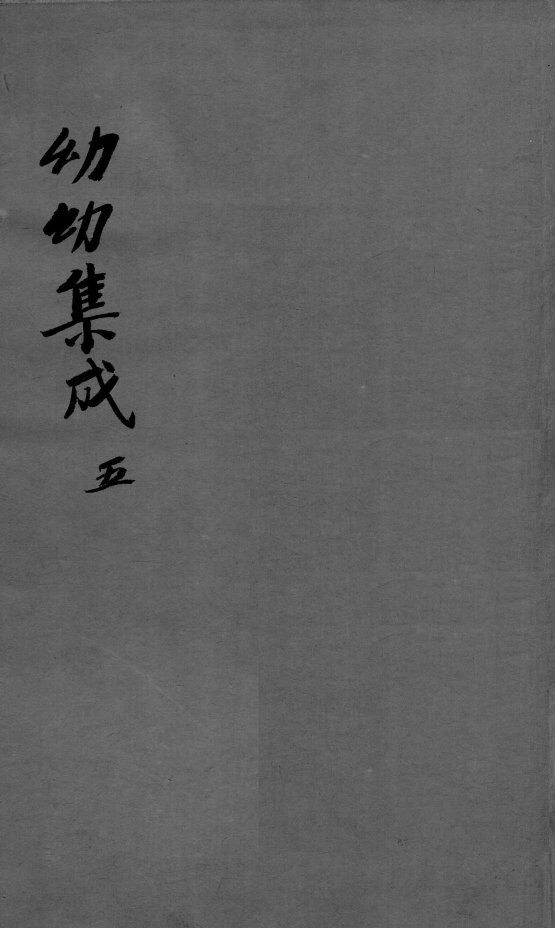 幼幼集成 五